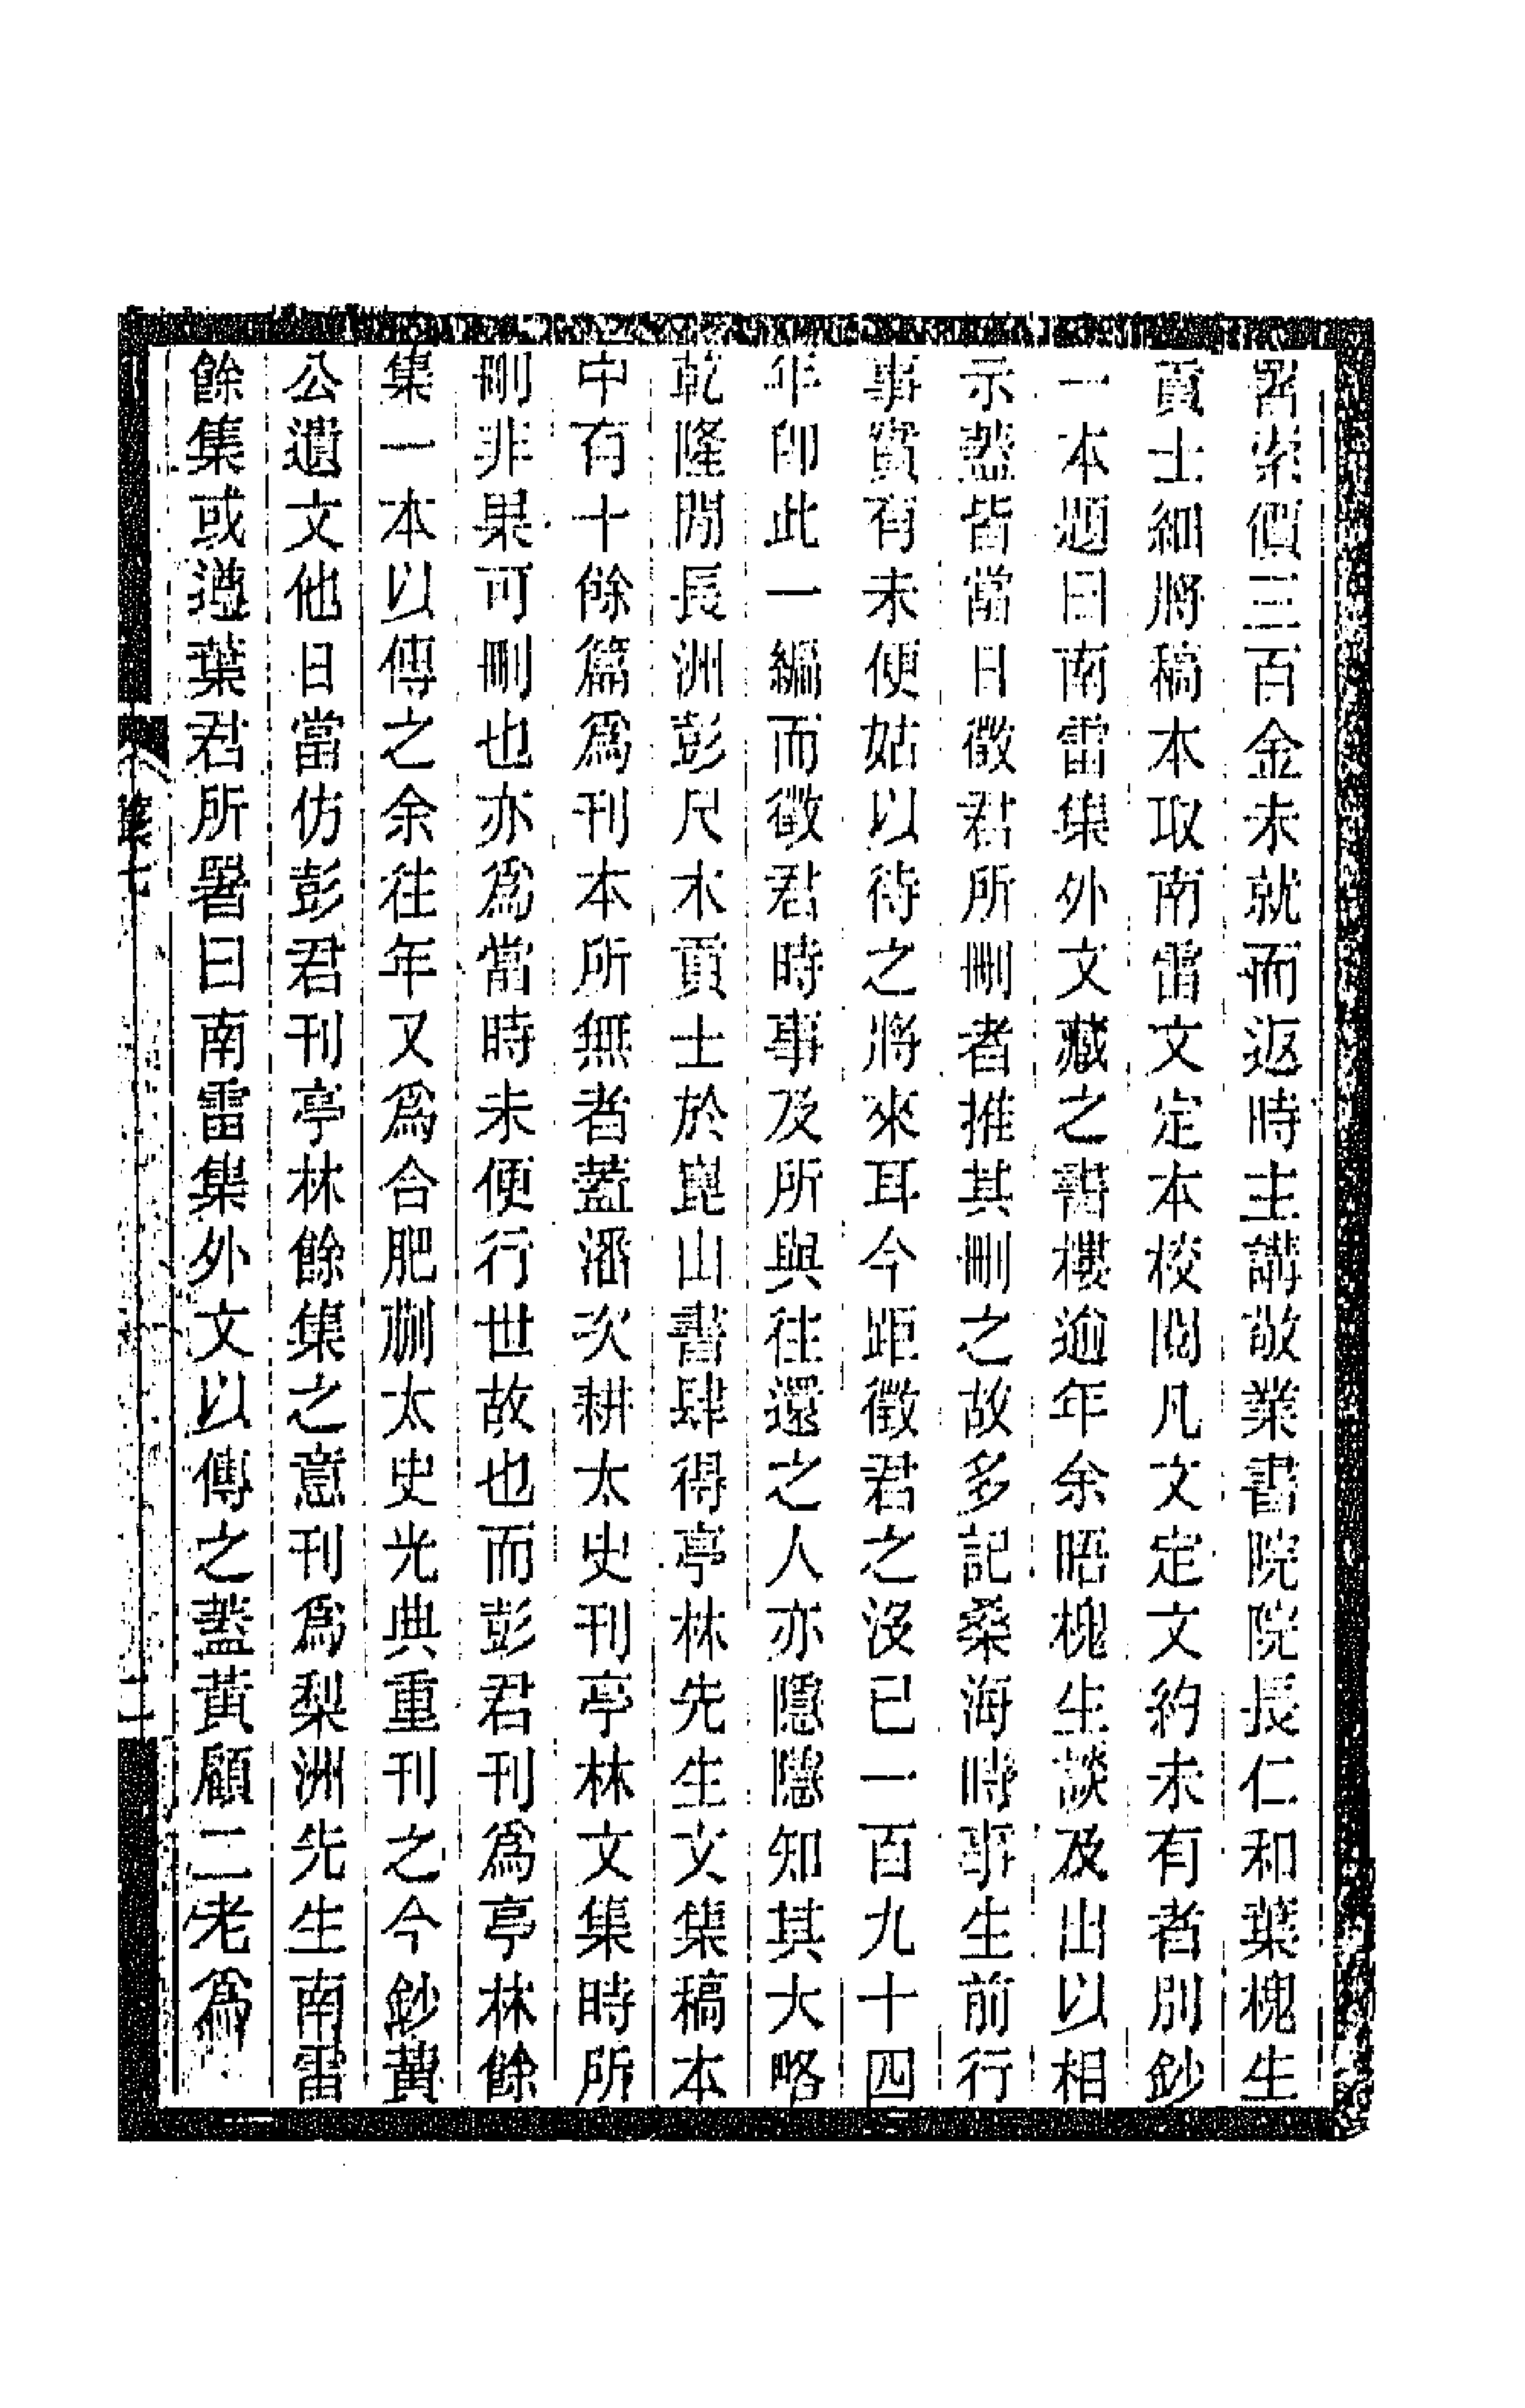 署索價三百金未就而返時主講敬業書院院長仁和葉槐生
貢士細將稿本取南雷文定本校閱凡文定文約未有者別鈔
一本題曰南雷集外文藏之書樓逾年余晤槐生談及出以相
示葢皆當日徵君所刪者推其刪之故多記桑海時事生前行
事實有未便姑以待之將來耳今距徵君之沒已一百九十四
年卽此一編而徵君時事及所與往還之人亦隱隱知其大略
乾隆閒長洲彭尺木貢士於崑山書肆得亭林先生文集稿本
中有十餘篇爲刊本所無者葢潘次耕太史刊亭林文集時所
刪非果可刪也亦爲當時未便行世故也而彭君刊爲亭林餘
集一本以傳之余往年又爲合肥蒯太史光典重刊之今鈔黃
公遺文他日當仿彭君刊亭林餘集之意刊爲梨洲先生南雷
餘集或遵葉君所署曰南雷集外文以傳之葢黃顧二老爲
集七
二